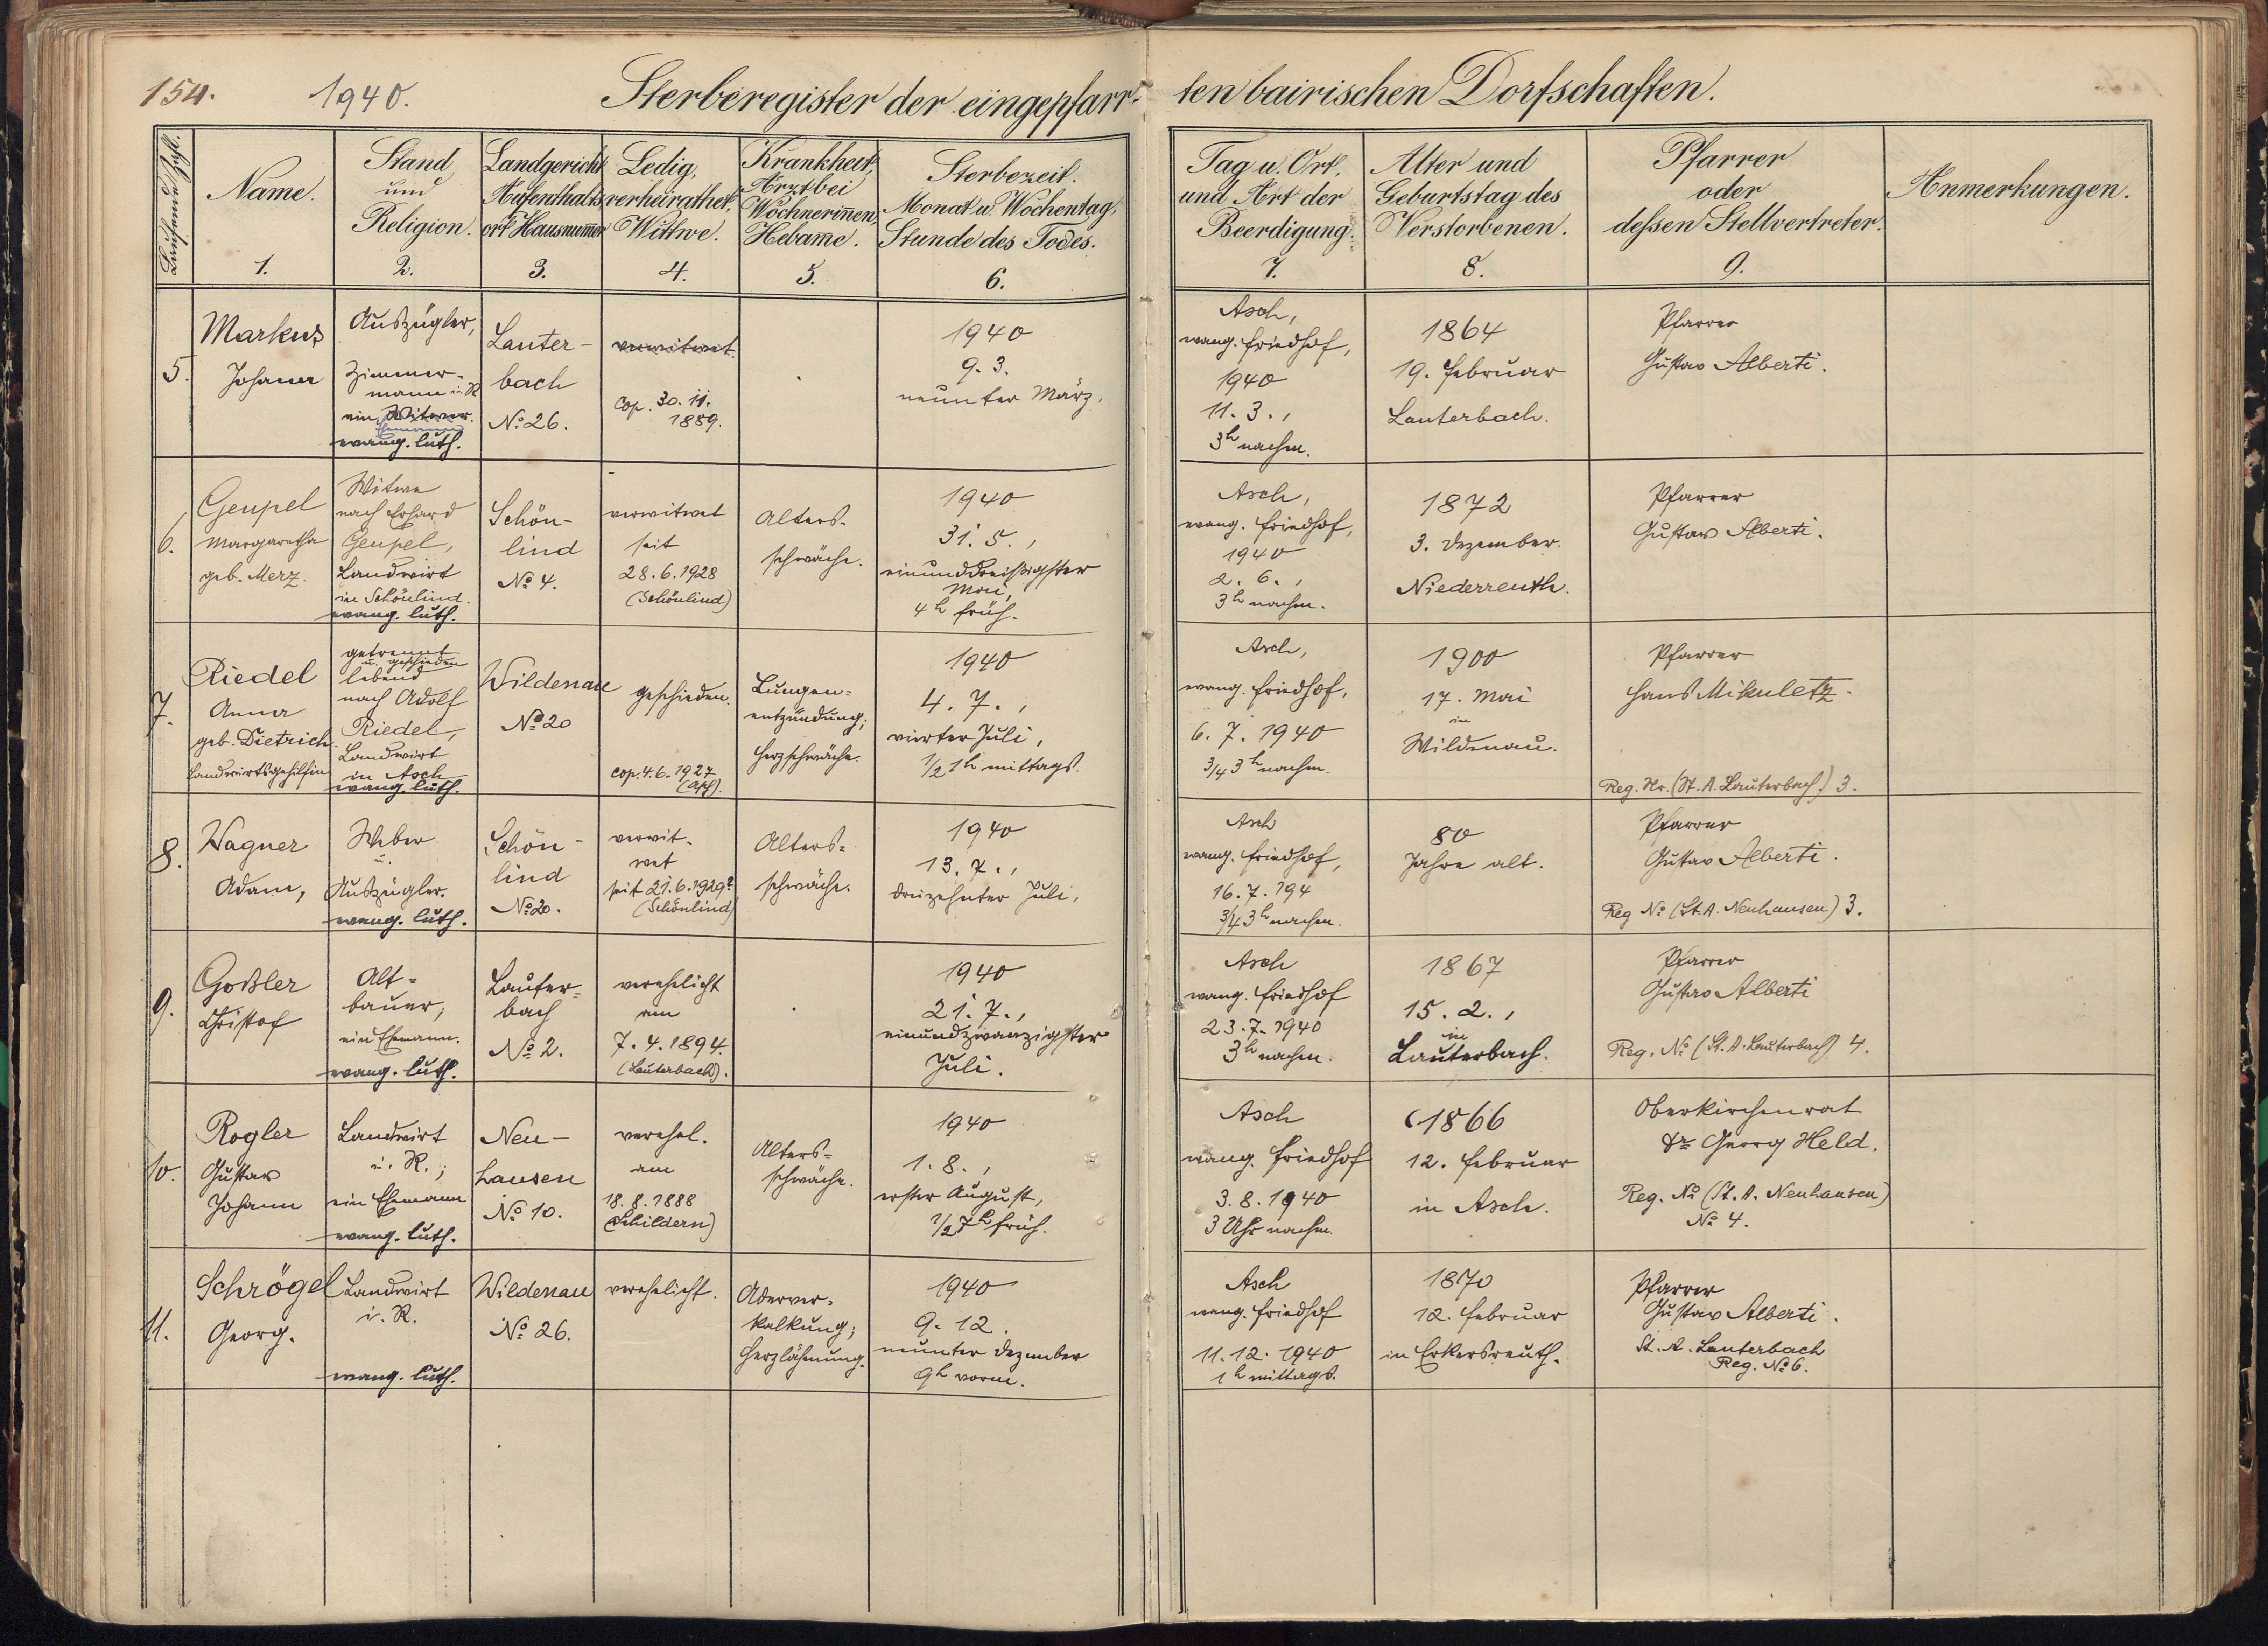 154.
1940.
Sterberegister der eingepfarr-
ten bairischen Dorfschaften.
Laufende Zahl.
Name.
1.
Stand
und
Religion.
2.
Landgericht
Aufenthalts
ort Hausnum̅er
3.
Ledig,
verheirathet,
Wittwe.
4.
Krankheit,
Arzt bei
Wöchnerin̅en,
Hebam̅e.
5.
Sterbezeit.
Monat u. Wochentag,
Stunde des Todes.
6.
Tag u. Ort,
und Art der
Beerdigung.
7.
Alter und
Geburtstag des
Verstorbenen.
8.
Pfarrer
oder
deſsen Stellvertreter.
9.
Anmerkungen.
5.
Markus
Johann
Auszügler,
Zimmer-
mann i. R
ein Witwer.
Ehemann
evang. luth.
Lauter-
bach
No. 26.
verwitwet.
Cop. 30. 11.
1889.
1940
9. 3.
neunter März.
Asch,
evang. Friedhof,
1940
11. 3.,
3h nachm.
1864
19. Februar
Lauterbach.
Pfarrer
Gustav Alberti.
6.
Geupel
Margaretha
geb. Merz.
Witwe
nach Erhard
Geupel,
Landwirt
in Schönlind.
evang. luth.
Schön-
lind
No. 4.
verwitwet
seit
28. 6. 1928
(Schönlind)
Alters-
schwäche.
1940
31. 5.,
einunddreißigster
Mai,
4h früh.
Asch,
evang. Friedhof,
1940
2. 6.,
3h nachm.
1872
3. Dezember.
Niederreuth.
Pfarrer
Gustav Alberti.
7.
Riedel
Anna
geb. Dietrich
Landwirtsgehilfin
getrennt
u. geschieden
lebend
nach Adolf
Riedel,
Landwirt
in Asch
evang. luth.
Wildenau
No 20
geschieden.
cop. 4. 6. 1927
(Asch).
Lungen=
entzündung;
Herzschwäche.
1940
4. 7.,
vierter Juli,
1/2 1h mittags.
Asch,
evang. Friedhof,
6. 7. 1940
3/4 3h nachm.
1900
17. Mai
in
Wildenau.
Pfarrer
Hans Mikuletz.
Reg. Nr. (St. A. Lauterbach) 3.
8.
Wagner
Adam,
Weber
u.
Auszügler.
evang. luth.
Schön-
lind
No 20.
verwit-
wet
seit 21. 6. 1929?
(Schönlind)
Alters=
schwäche.
1940
13. 7.,
dreizehnter Juli,
Asch
evang. Friedhof,
16. 7. 194
3/4 3h nachm.
80
Jahre alt.
Pfarrer
Gustav Alberti.
Reg No (St. A. Neuhausen) 3.
9.
Goßler
Christof
Alt=
bauer,
ein Ehemann.
evang. luth.
Lauter=
bach
No 2.
verehelicht
am
7. 4. 1894.
(Lauterbach).
1940
21. 7.,
einundzwanzigster
Juli.
Asch
evang. Friedhof
23. 7. 1940
3h nachm.
1867
15. 2.,
in
Lauterbach.
Pfarrer
Gustav Alberti
Reg. No (St. A. Lauterbach) 4.
10.
Rogler
Gustav
Johann
Landwirt
i. R.;
ein Ehemann
evang. luth.
Neu-
hausen
No 10.
verehel.
am
18. 8. 1888
(Schildern)
Alters=
schwäche.
1940
1. 8.,
erster August,
1/2 7h früh.
Asch
evang. Friedhof
3. 8. 1940
3 Uhr nachm.
1866
12. Februar
in Asch.
Oberkirchenrat
Dr Georg Held.
Reg. No (St. A. Neuhausen)
No 4.
11.
Schrögel
Georg.
Landwirt
i. R.
evang. luth.
Wildenau
No 26.
verehelicht.
Aderver=
kalkung;
Herzlähmung.
1940
9. 12.
neunter Dezember
9h vorm.
Asch
evang. Friedhof
11. 12. 1940
1h mittags.
1870
12. Februar
in Erkersreuth.
Pfarrer
Gustav Alberti.
St. A. Lauterbach
Reg. No 6.